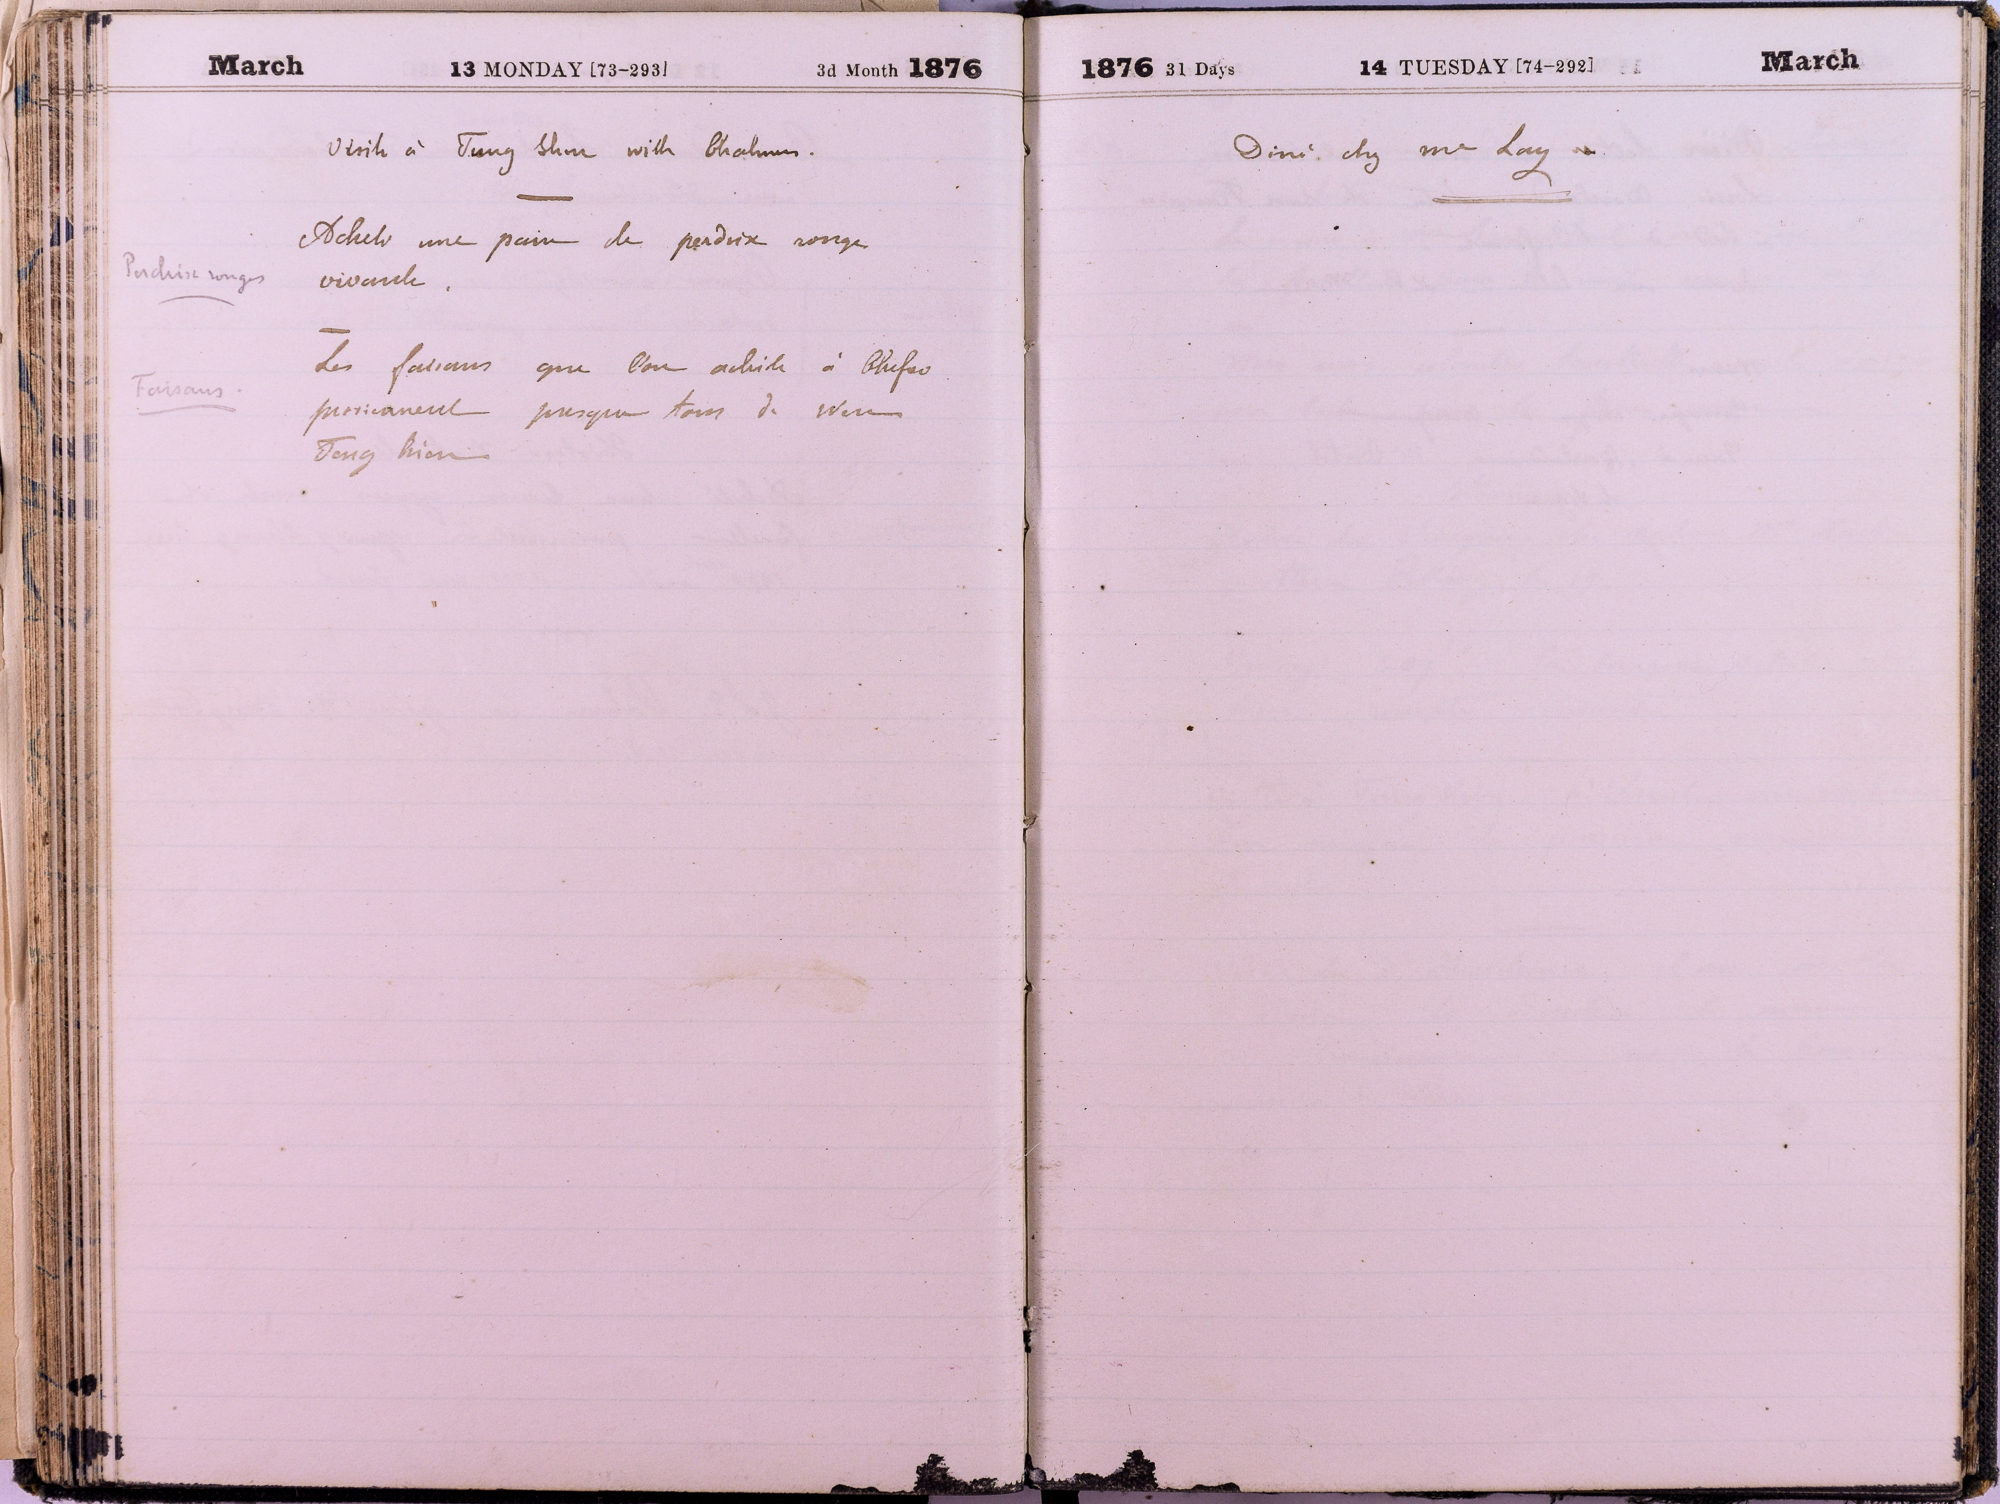 March 13 MONDAY [73-293] 3d Month 1876
Visite à Tung Shin with Chalmers.
Acheté une paire de perdrix rouge
Perdrix rouges
vivante.
Les faisans que l'on achète à Chefoo
Faisans.
proviennent presque tous de Wen
Teng hien
1876 31 Days 14 TUESDAY [74-292] March
Diné chez Mr Lay